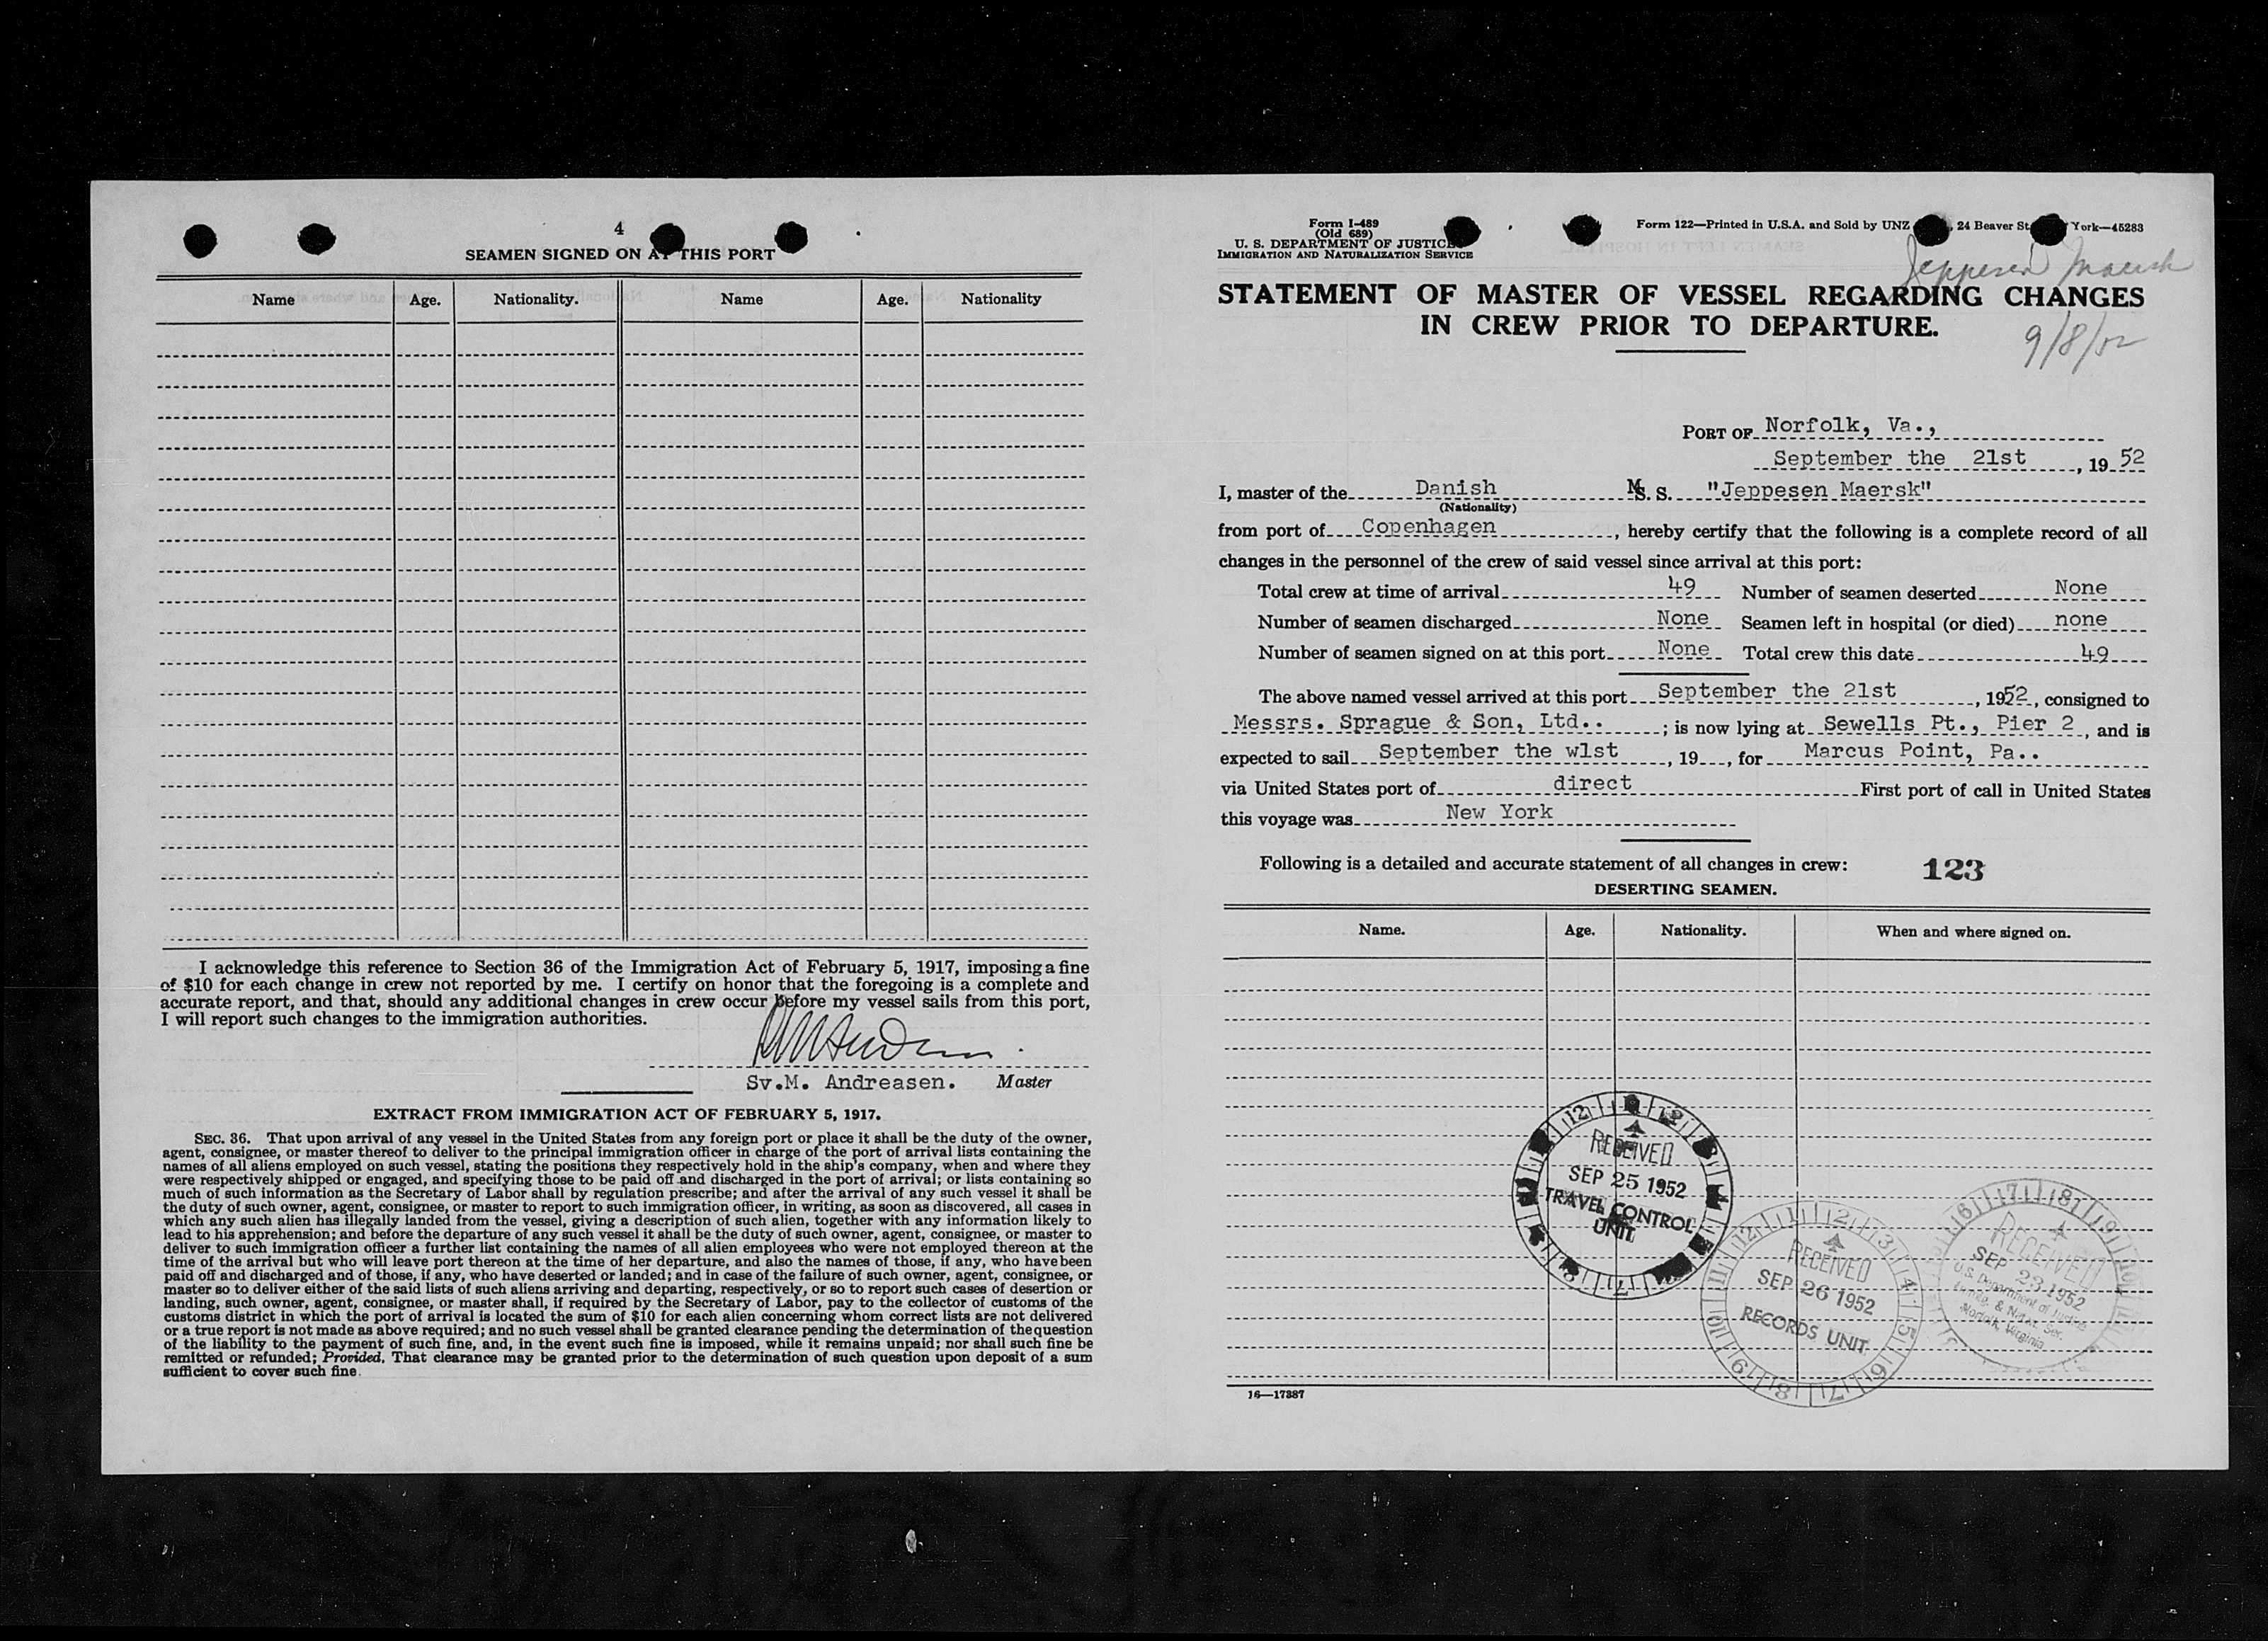 4
SEAMEN SIGNED ON AT THIS PORT
Name Age. Nationality. Name Age. Nationality
I acknowledge this reference to Section 36 of the Immigration Act of February 5, 1917, imposing a fine
of $10 for each change in crew not reported by me. I certify on honor that the foregoing is a complete and
accurate report, and that, should any additional changes in crew occur before my vessel sails from this port,
I will report such changes to the immigration authorities.
Sv.M. Andreasen. Master
EXTRACT FROM IMMIGRATION ACT OF FEBRUARY 5, 1917.
SEC. 36. That upon arrival of any vessel in the United States from any foreign port or place it shall be the duty of the owner,
agent, consignee, or master thereof to deliver to the principal immigration officer in charge of the port of arrival lists containing the
names of all aliens employed on such vessel, stating the positions they respectively hold in the ship's company, when and where they
were respectively shipped or engaged, and specifying those to be paid off and discharged in the port of arrival; or lists containing so
much of such information as the Secretary of Labor shall by regulation prescribe; and after the arrival of any such vessel it shall be
the duty of such owner, agent, consignee, or master to report to such immigration officer, in writing, as soon as discovered, all cases in
which any such alien has illegally landed from the vessel, giving a description of such alien, together with any information likely to
lead to his apprehension; and before the departure of any such vessel it shall be the duty of such owner, agent, consignee, or master to
deliver to such immigration officer a further list containing the names of all alien employees who were not employed thereon at the
time of the arrival but who will leave port thereon at the time of her departure, and also the names of those, if any, who have been
paid off and discharged and of those, if any, who have deserted or landed; and in case of the failure of such owner, agent, consignee, or
master so to deliver either of the said lists of such aliens arriving and departing, respectively, or so to report such cases of desertion or
landing, such owner, agent, consignee, or master shall, if required by the Secretary of Labor, pay to the collector of customs of the
customs district in which the port of arrival is located the sum of $10 for each alien concerning whom correct lists are not delivered
or a true report is not made as above required; and no such vessel shall be granted clearance pending the determination of the question
of the liability to the payment of such fine, and, in the event such fine is imposed, while it remains unpaid; nor shall such fine be
remitted or refunded; Provided, That clearance may be granted prior to the determination of such question upon deposit of a sum
sufficient to cover such fine.
Form I-489
(Old 689)
U. S. DEPARTMENT OF JUSTICE
IMMIGRATION AND NATURALIZATION SERVICE
Form 122—Printed in U.S.A. and Sold by UNZ 24 Beaver St. York—45283
Jeppesen Maersk
STATEMENT OF MASTER OF VESSEL REGARDING CHANGES
IN CREW PRIOR TO DEPARTURE.
9/8/52
PORT OF Norfolk, Va.,
September the 21st, 19 52
I, master of the Danish M. S. "Jeppesen Maersk"
(Nationality)
from port of Copenhagen, hereby certify that the following is a complete record of all
changes in the personnel of the crew of said vessel since arrival at this port:
Total crew at time of arrival 49 Number of seamen deserted None
Number of seamen discharged None Seamen left in hospital (or died) none
Number of seamen signed on at this port None Total crew this date 49
The above named vessel arrived at this port September the 21st, 1952, consigned to
Messrs. Sprague & Son, Ltd.. ; is now lying at Sewells Pt., Pier 2, and is
expected to sail September the wlst, 19 , for Marcus Point, Pa..
via United States port of direct First port of call in United States
this voyage was New York
Following is a detailed and accurate statement of all changes in crew: 123
DESERTING SEAMEN.
Name. Age. Nationality. When and where signed on.
RECEIVED
SEP 25 1952
TRAVEL CONTROL
UNIT
RECEIVED
SEP 26 1952
RECORDS UNIT
RECEIVED
SEP 23 1952
U.S. Department of Justice
Immig. & Nat. Ser.
Norfolk, Virginia
16—17387